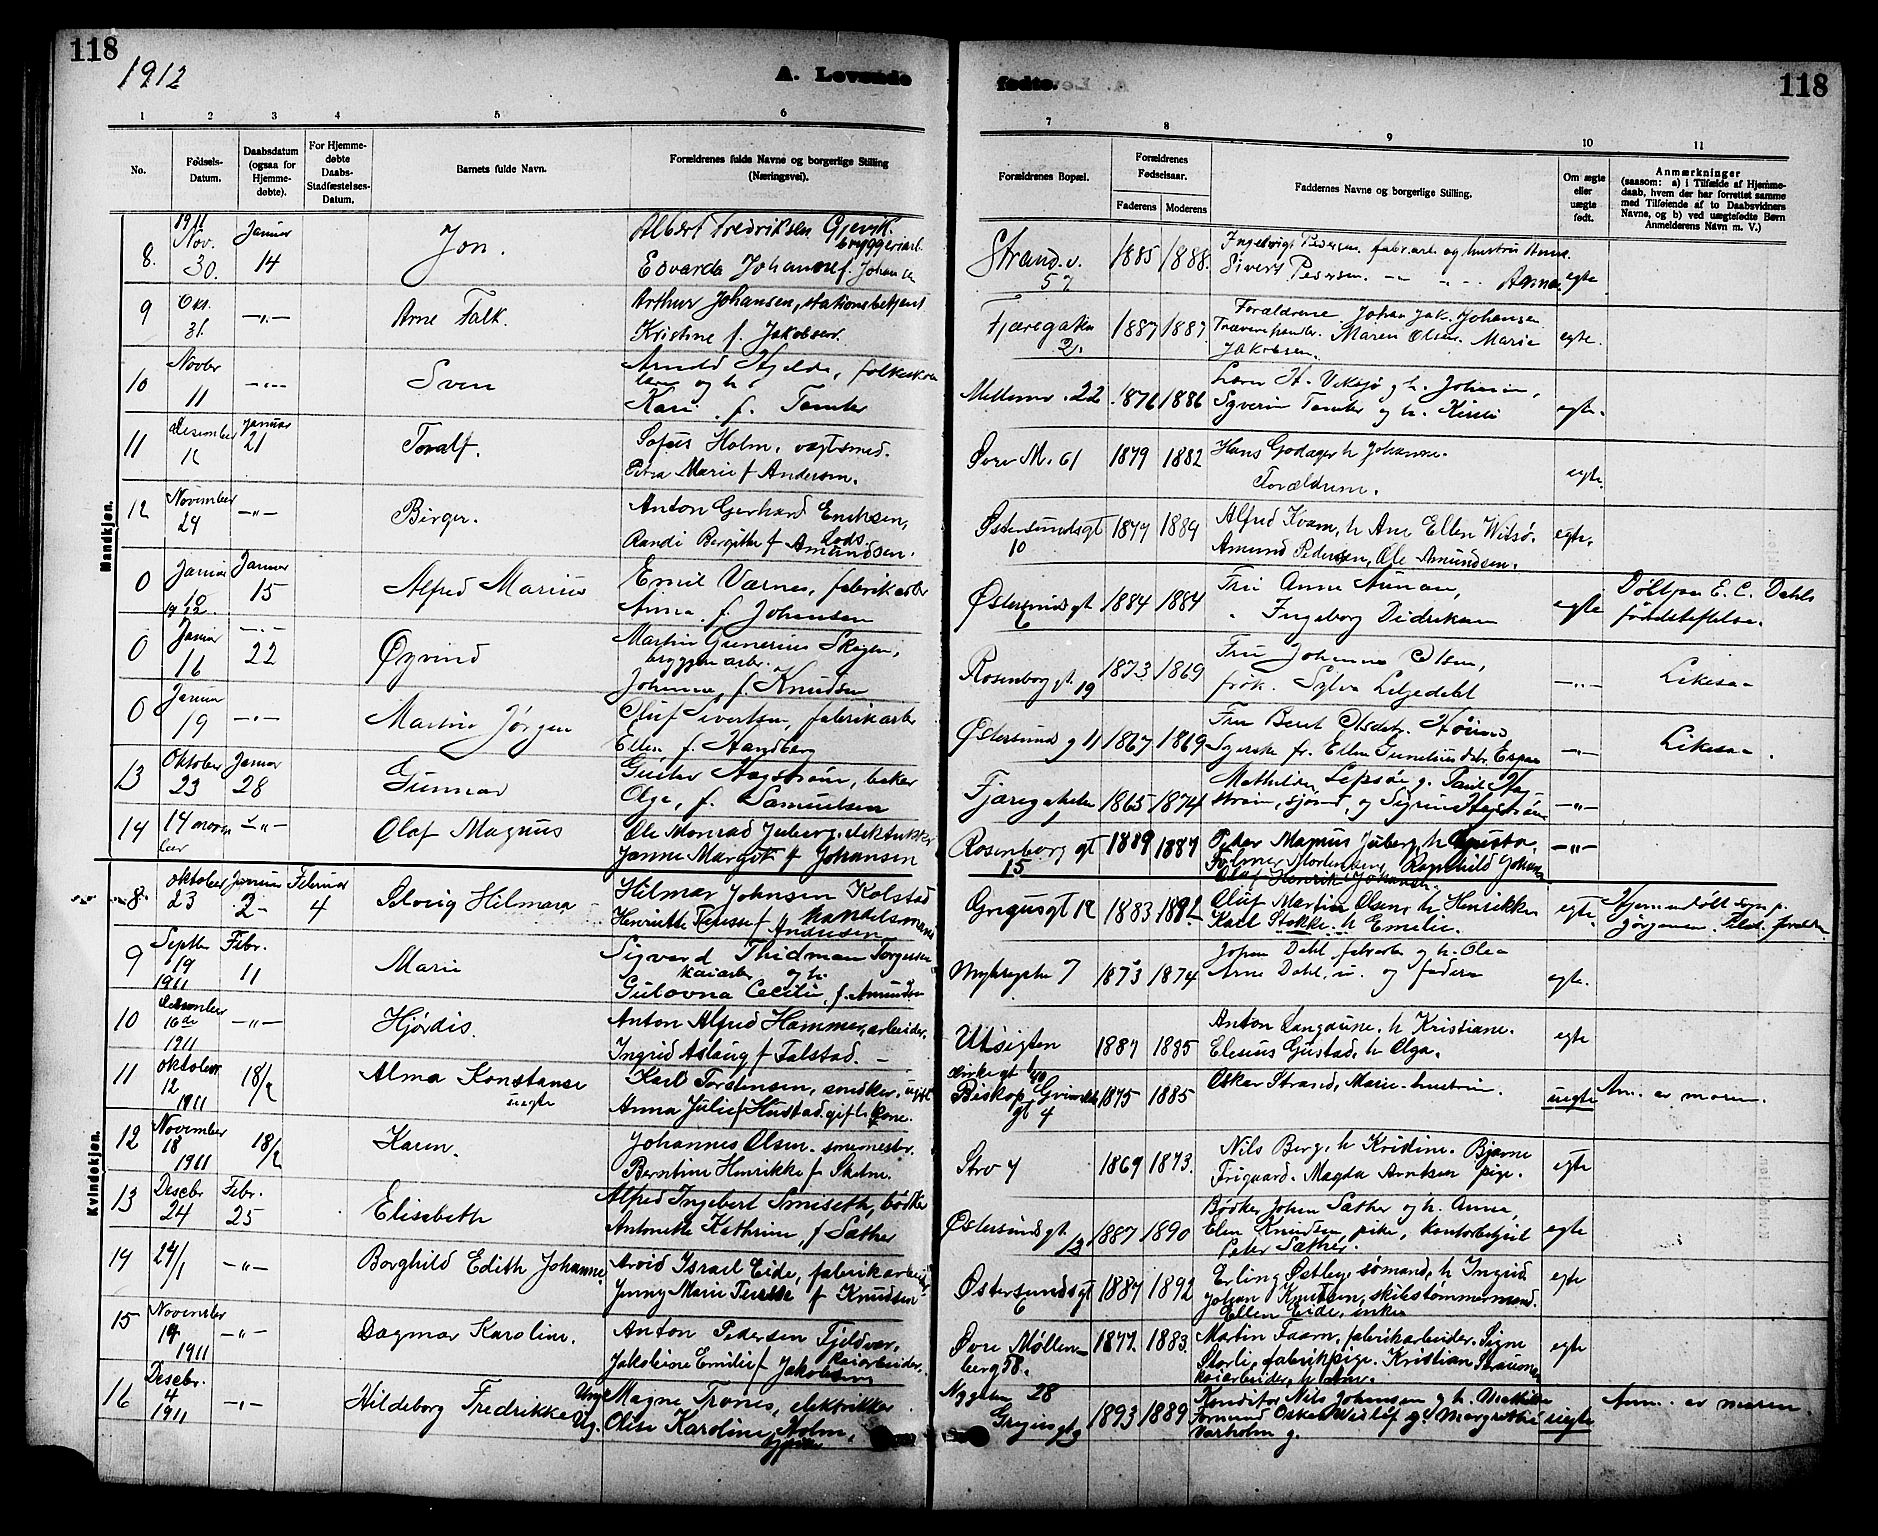 118
1912
A. Levende
fødte.
118
1
2
3
4
5
6
7
8
9
10
11
No.
Fødsels-
Datum.
Daabsdatum
(ogsaa for
Hjemme-
døbte).
For Hjemme-
døbte
Daabs-
Stadfæstelses-
Datum.
Barnets fulde Navn.
Forældrenes fulde Navne og borgerlige Stilling
(Næringsvei).
Forældrenes Bopæl.
Forældrenes
Fødselsaar.
Faderens
Moderens
Faddernes Navne og borgerlige Stilling.
Om ægte
eller
uægte
født.
Anmærkninger
(saasom: a) i Tilfælde af Hjemme-
daab, hvem der har forrettet samme
med Tilføiende af to Daabsvidners
Navne, og b) ved uægtefødte Børn
Anmelderens Navn m. V.)
Mandkjøn.
8.
1911
Nov.
30.
Januar
14
Jon.
Albert Fredriksen Gjevik.
bryggeriarb.
Edvarda Johanne f. Johansen
Strand.v.
57
1885
1888.
Pedersen fabr.arb. og hustru Anna.
Sivert Pedersen — „ — Anna.
egte
9
Okt.
31.
—„—
Arne Falk.
Arthur Johansen, stationsbetjent
Kristine f. Jakobsen.
Fjæregaten
2.
1887
1887.
Forældrene Johan Jak. Johansen
Maren Olsen. Marie
Jakobsen.
egte.
10
Novbr
11
—„—
Sven
Arnold Hjelde, folkeskole
lærer og h.
Kari f. Tamber
Mellemv. 22
1876
1886
Syverin Tamber og h. Kirsti
egte.
11
desember
12
Januar
21
Toralf.
Sofus Holm, vagtsmed.
Petra Marie f Andersen.
Øvre M. 61
1879
1882
Hans Godager h Johanne.
Forældrene.
egte.
12
November
24
—„—
Birger.
Anton Gerhard Eriksen,
lods
Randi Bergitte f Amundsen.
Østersundsgt
10
1877
1884
Alfred Kvam, h Ane Ellen Witsø.
Amund Pedersen, Ole Amundsen.
egte.
0
Januar
10
1912.
Januar
15
Alfred Marius
Emil Værnes, fabrikarbr
Anna f. Johansen
Østersundsgt
6
1884
1884
Fru Anna Aunan,
„ Ingeborg Didriksen
egte
Døbt paa E. C. Dahls
fødselsstiftelse.
0
Januar
16
—„—
22
Øyvind
Martin Gunerius Skogen,
bryggeriarb.
Johanna, f. Knudsen
Rosenborg gt. 19
1873
1869
Fru Johanna Olsen,
frøk. Sylva Liljedahl
—„—
Likesaa
0
Januar
19
—„—
Martin Jørgen
Oluf Sivertsen, fabrikarbr
Ellen f. Handberg
Østersunds g 11
1867
1869
—„—
Likesaa
13
Oktober
23
Januar
28
Gunnar
Gustav Hagstrøm, baker
Olga, f. Samuelsen
Fjæregaten
1
1865
1874
—„—
14
14 novem
ber
—„—
Olaf Magnus
Ole Monrad Juberg, elektrikker
Janne Margit f Johansen
Rosenborg gt
15
1889
1887
Peder Magnus Juberg, h Gusta,
Folmer Mortenberg, Ragnhild Johansen
Olaf Henrik Johansen.
—„—
Kvindekjøn.
8
oktober
23
Januar
2
Februar
4
Solveig Hilmara
Hilmar Johnsen Kolstad
handelsmand
Henriette Terese f Andresen
Gregusgt 12
1883
1892
Oluf Martin Olsen, h Henrikke
Karl Stokke. h Emilie.
egte.
9
Septbr
19
1911
Febr.
11
Marie
Sigvard Thidman Torgersen
kaiarbr og h.
Gulovna Cecilie, f. Amundsen
7
1873
1874
Johan Dahl fabrarbr og h. Olea
Arne Dahl, u. og faderen
egte.
10
Desember
16de
1911
—„—
Hjørdis.
Anton Alfred Hammer, arbeider.
Ingrid Aslaug f Falstad. —
Utsigten
1887
1885
Anton Langaune. h Kristiane.
Elesius Gustad, h Olga.
egte
11
oktober
12
1911
18/2
Alma Konstanse
uegte
Karl Torstensen, snedker, ugift
Anna Julie f Hustad. gift kone.
Kirkegt 40
Biskop Grimelds
gt 4
1875
1885
Oskar Strand, Marie hustru.
uegte
Anm. er moren.
12
November
18
1911
18/2
Karen.
Johannes Olsen. smedmester
Berntine Henrikke f Sketne.
Stro 4
1869
1873.
Nils Berg. h Kristine. Bjarne
Frigaard. Magda Arntsen pige.
egte
13
Desebr
24
Febr.
25
Elisabeth
Alfred Ingebert Smiseth, bødker
Antonette Kathrine, f Sæther
Østersundsgt
12
1887
1890
Bødker Johan Sæther og h. Anna,
Elen Knudsen, pike, kontorbetjent
Peter Sæther.
egte
14
24/1
—„—
Borghild Edith Johanne
Arvid Israel Eide, fabrikarbeider
Jenny Marie Terese f Knudsen
Østersundsgt
6
1887
1892
Erling Østby, sømand, h Ingrid
Johan Knutsen, skibstømmermand.
Ellen Eide, enke
egte
15
November
14
1911
—„—
Dagmar Karoline.
Anton Pedersen Fjeldvær,
kaiarbeider.
Jakobine Emilie f Jakobsen
Øvre Møllen-
berg 58.
1877.
1883.
Martin Faarn, fabrikarbeider. Signe
Storli, fabrikpige. Kristian Straume
kaiarbeider, h Ane.
egte
16
Desebr.
4
1911
—„—
Hildeborg Fredrikke
Ung. Magne Trones, elektrikker
Ug. Olise Karoline Holm,
Nygaten 28
Gregusgt 9
1893
1889
Konditor Nils Johansen og h. Mathilde
Varholm g.
uegte
Anm. er moren